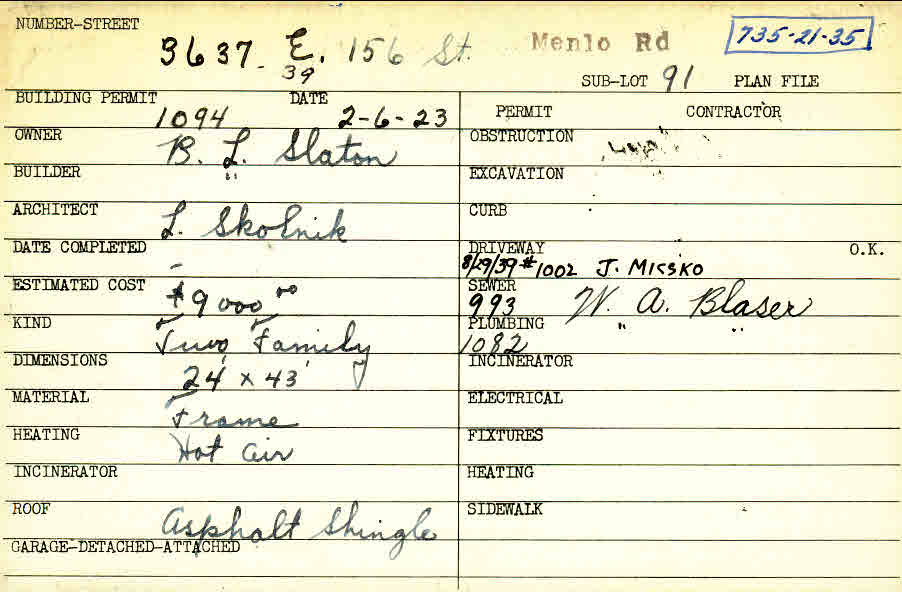 NUMBER-STREET
3637 E. 156 St. Menlo Rd 735-21-35
39
SUB-LOT 91 PLAN FILE
BUILDING PERMIT 1094 DATE 2-6-23
PERMIT CONTRACTOR
OWNER B. L. Slaton
OBSTRUCTION
BUILDER "
EXCAVATION
ARCHITECT L. Skolnik
CURB
DATE COMPLETED -
DRIVEWAY O.K.
8/29/39 #1002 J. MICSKO
ESTIMATED COST $9000 00
SEWER 993 W. A. Blaser
KIND Two Family
PLUMBING 1082 " "
DIMENSIONS 24' x 43'
INCINERATOR
MATERIAL Frame
ELECTRICAL
HEATING Hot air
FIXTURES
INCINERATOR
HEATING
ROOF Asphalt Shingle
SIDEWALK
GARAGE-DETACHED-ATTACHED